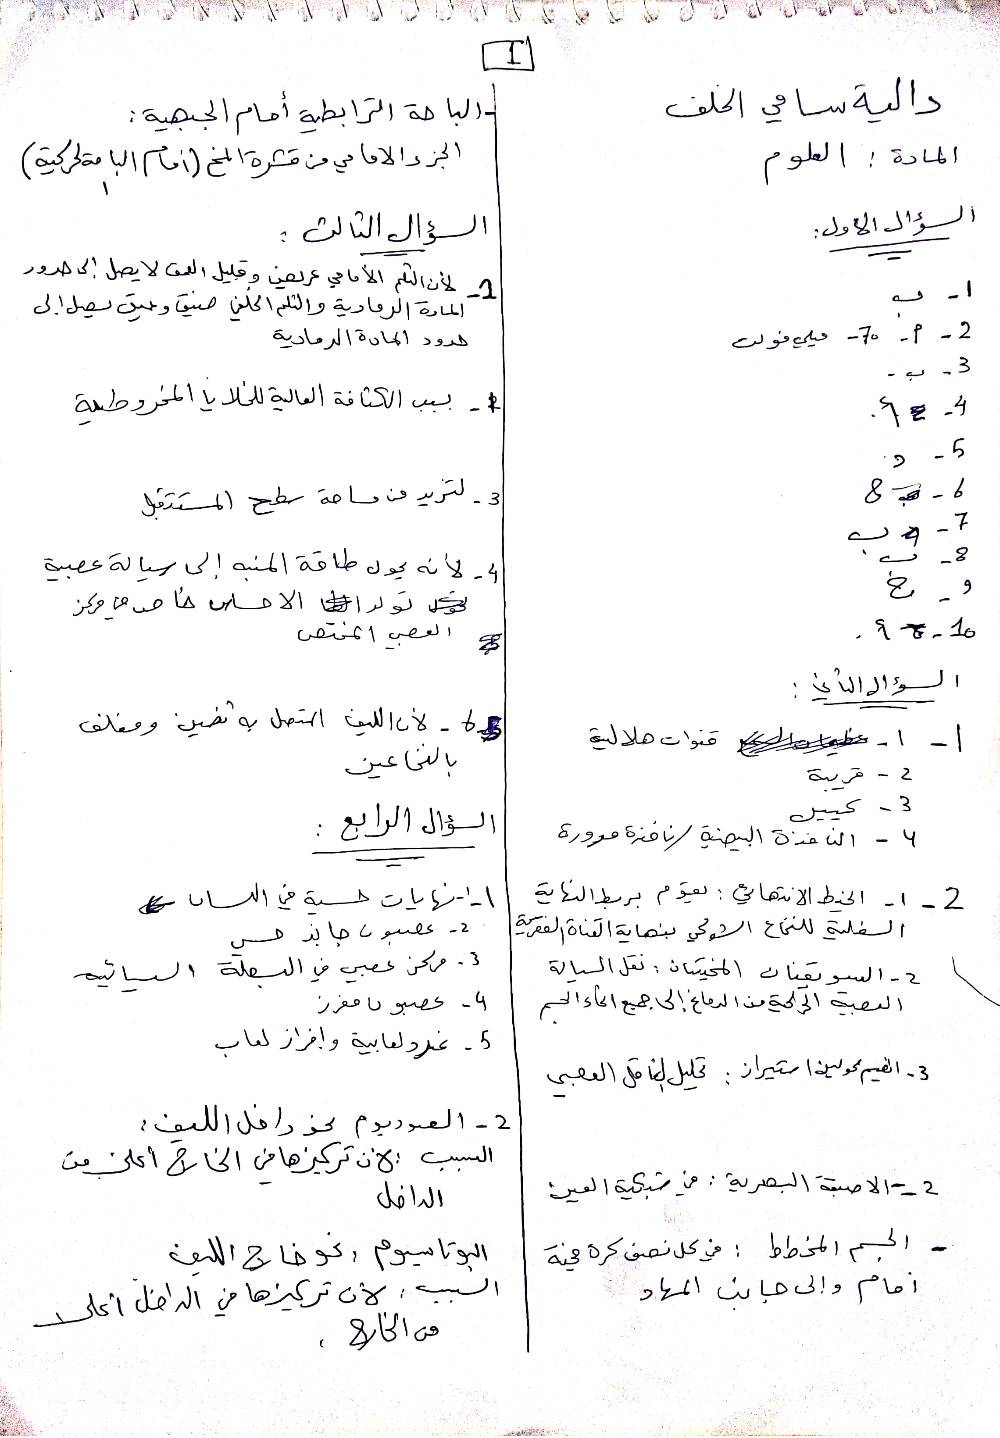 1
دالية سامي الخلف
المادة : العلوم
السؤال الاول:
1- ب
2- م- 70- ميلي فولت
3- ب-
4-
5- د.
6- 8
7- ب
8- ب
9- ج
10-
السؤال الثاني :
1- 1- قنوات هلالية
2- قريبة
3- كييس
4- النافذة البيضية / نافذة مدورة
2- 1- الخيط الانتهائي : يقوم بربط النهاية
السفلية للنخاع الشوكي بنهاية القناة الفقرية
2- السويقتان المخيتان : نقل السيالة
العصبية الحركية من الدماغ إلى جميع انحاء الجسم
3- انظيم كولين استيراز : تحليل الناقل العصبي
2- الاصبغة البصرية : في شبكية العين
- الجسم المخطط : في كل نصف كرة مخية
أمام وإلى جانب المهاد
-الباحة الترابطية أمام الجبهية :
الجزء الامامي من قشرة المخ (أمام الباحة الحركية)
السؤال الثالث :
1- لأن الثلم الأمامي عريض وقليل العمق لا يصل إلى حدود
المادة الرمادية والثلم الخلفي ضيق وعميق يصل إلى
حدود المادة الرمادية
- بسبب الكثافة العالية للخلايا المخروطية
3- لتزيد من مساحة سطح المستقبل
4- لأنه يحول طاقة المنبه إلى سيالة عصبية
تولد الاحساس خاص في مركز
العصبي المختص
6- لأن الليف المتصل به ثخين ومغلف
بالنخاعين
السؤال الرابع :
1-1- نهايات حسية في اللسان
2- عصبون جابذ حسي
3- مركز عصبي في البصلة السيسائية
4- عصبون مفرز
5- غدد لعابية وإفراز لعاب
2- الصوديوم نحو داخل الليف :
السبب : لأن تركيزها في الخارج أعلى من
الداخل
البوتاسيوم : نحو خارج الليف
السبب : لأن تركيزها في الداخل أعلى
من الخارج .